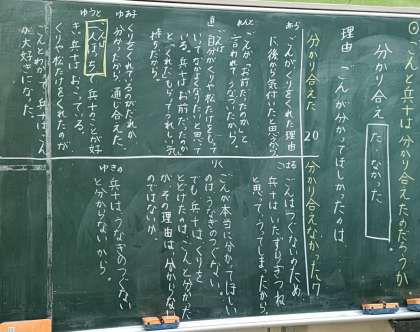 ごんと兵十は分かり合えたのだろうか。
分かり合え
た
なかった
理由 ごんが分かってほしかったのは
分かり合えた 20
分かり合えなかった 7
あら
ごんがくりをくれた理由
に後から気付いたと思うから。
れんと
「ごん、お前だったのか」と
言われてうなづいたから。
自分がくりや松たけをもらって
いる。兵十はお前だったのか
とくれたくりをもらってうれしい気
持ちだから。
ゆあ
くりをくれているのがだれか
分かったから、通じ合えた。
ゆうと
ごんは兵十のことが好
き。兵十はおこっている。
くりや松たけをくれたのが
ごんとわかって兵十はごん
が大好きになった。
こはる
ごんはつぐないのため、
兵十はいたずらぎつね
と思って、うってしまったから。
りく
ごんが本当に分かってほしい
のはうなぎのつぐない。
でも、兵十はくりを
とどけたのはごんと分かった
が、その理由は分からなかった
のではないか。
ゆきの
兵十は、うなぎのつぐない
と分からないから。